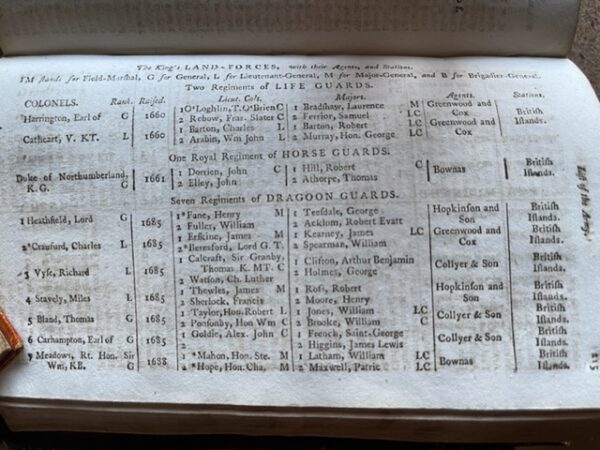 The King's LAND-FORCES, with their Agents, and Stations.
FM stands for Field-Marshal, G for General, L for Lieutenant-General, M for Major-General, and B for Brigadier-General.
Two Regiments of LIFE GUARDS.
COLONELS. Rank. Raised. Lieut. Cols. Majors. Agents. Stations.
Harrington, Earl of G 1660 1 O'Loghlin, T. O'Brien C 1 Bradshaw, Laurence M Greenwood and Cox British Islands.
2 Rebow, Fras. Slater C 2 Ferrior, Samuel LC
Cathcart, V. KT. L 1660 1 Barton, Charles L 1 Barton, Robert LC Greenwood and Cox
2 Arabin, Wm John L 2 Murray, Hon. George
One Royal Regiment of HORSE GUARDS.
Duke of Northumberland, K. G. G 1661 1 Dorrien, John C 1 Hill, Robert C Bownas British Islands.
2 Elley, John 2 Athorpe, Thomas
Seven Regiments of DRAGOON GUARDS.
1 Heathfield, Lord G 1685 1 *Fane, Henry M 1 Teesdale, George Hopkinson and Son British Islands.
2 Fuller, William 2 Acklom, Robert Evatt
2 *Craufurd, Charles L 1685 1 Erskine, James M 1 Kearney, James LC Greenwood and Cox British Islands.
2 *Beresford, Lord G. T. 2 Spearman, William
3 Vyse, Richard L 1685 1 Calcraft, Sir Granby, Thomas K. MT. C 1 Clifton, Arthur Benjamin Collyer & Son British Islands.
2 Watson, Ch. Luther 2 Holmes, George
4 Stavely, Miles L 1685 1 Thewles, James M 1 Ross, Robert Hopkinson and Son British Islands.
2 Sherlock, Francis 2 Moore, Henry
5 Bland, Thomas G 1685 1 Taylor, Hon. Robert L 1 Jones, William LC Collyer & Son British Islands.
2 Ponsonby, Hon Wm C 2 Brooke, William C
6 Carhampton, Earl of G 1685 1 Goldie, Alex. John C 1 French, Saint-George Collyer & Son British Islands.
2 Higgins, James Lewis
7 Meadows, Rt. Hon. Sir Wm, KB. G 1688 1 *Mahon, Hon. Ste. M 1 Latham, William LC Bownas British Islands.
2 *Hope, Hon. Cha. M 2 Maxwell, Patric LC